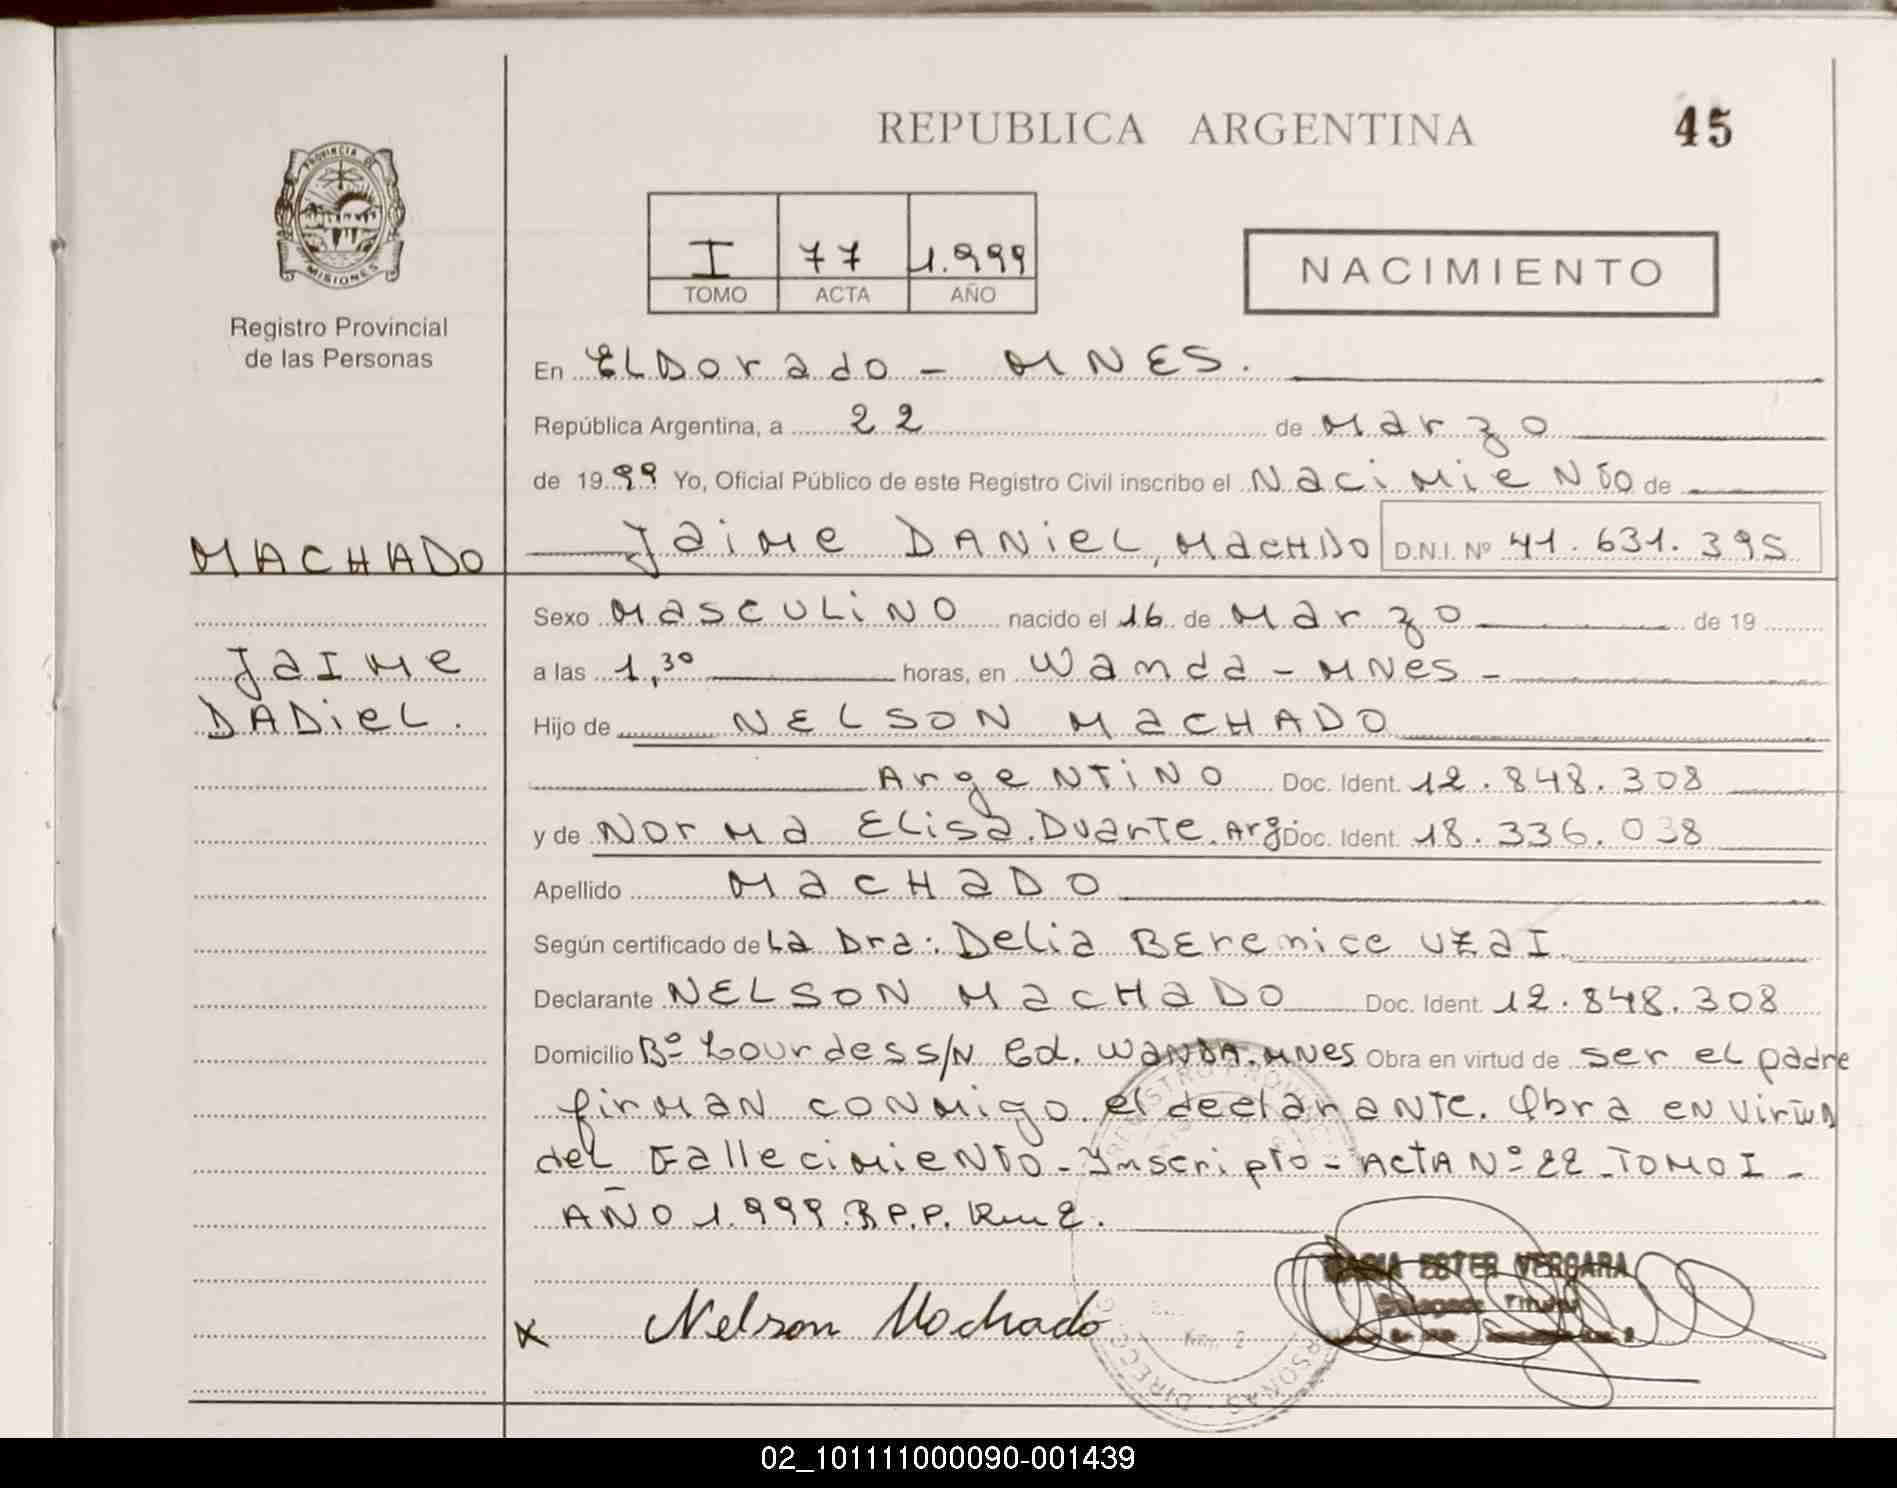 REPUBLICA ARGENTINA
45
PROVINCIA DE
MISIONES
Registro Provincial
de las Personas
I 77 1.999
TOMO ACTA AÑO
NACIMIENTO
En ELDorado - MNES.
República Argentina, a 22 de Marzo
de 1999 Yo, Oficial Público de este Registro Civil inscribo el Nacimiento de
MACHADO
Jaime DANieL, MacHDO D.N.I. Nº 41.631.395
Sexo MascULiNO nacido el 16 de Marzo de 19
JaIMe
a las 1,30 horas, en Wanda - MNes -
DADieL.
Hijo de NELSON MacHADO
ArgeNTiNO Doc. Ident. 12.848.308
y de Norma Elisa. Duarte. Arg. Doc. Ident. 18.336.038
Apellido MacHaDO
Según certificado de La Dra: Delia BErenice UZaI
Declarante NELSON MacHaDO Doc. Ident. 12.848.308
Domicilio Bº Lourdes S/N Ed. WANDA. MNes Obra en virtud de ser el padre
firMAN CONMigo el declaraNTe. Obra en virtud
del FallecimieNTO - Inscripto - ActA Nº 22 - TOMO I -
AÑO 1.999. R P.P.
MARIA ESTER VERGARA
Delegada Titular
x Nelson Machado
02_101111000090-001439